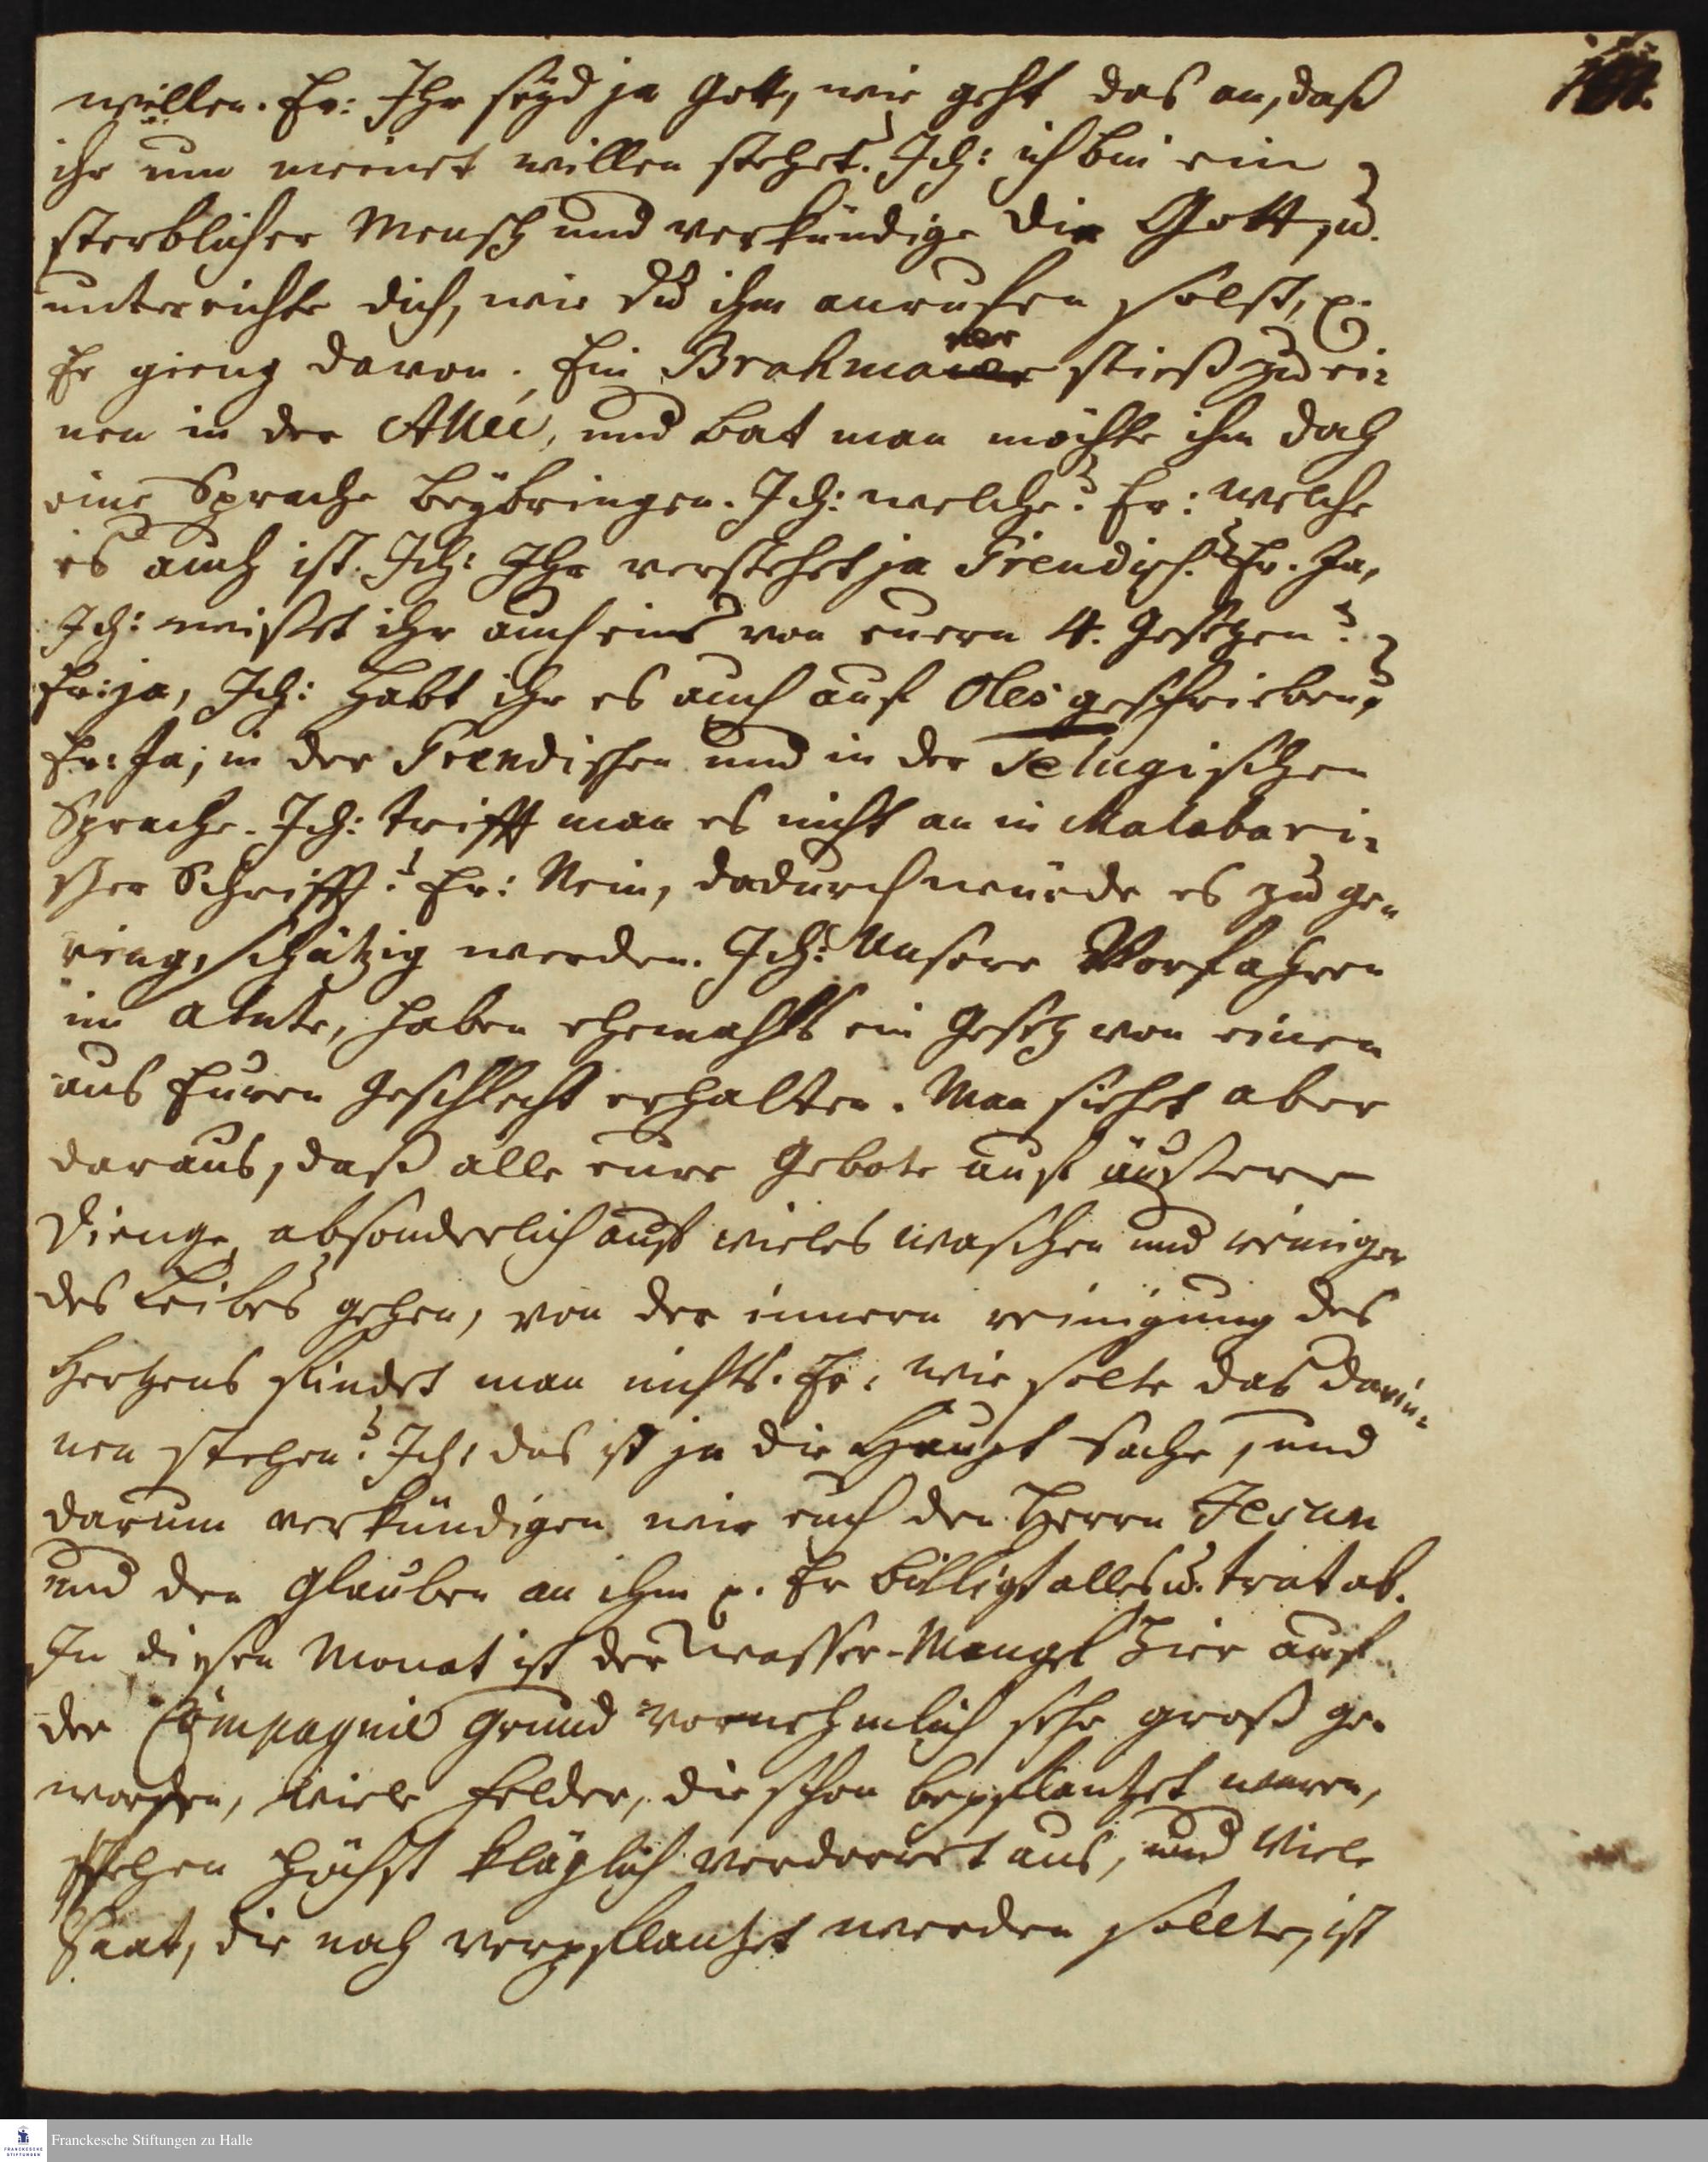 willen. Er: Ihr seyd ja Gott, wie geht das an, daß
ihr um meinet willen stehet? Ich: ich bin ein
sterblicher Mensch und verkündige dir Gott, u.
unterrichte dich, wie du ihn anrufen solst, p.
Er gieng davon. Ein Brahmaner stieß zu ei-
nen in der Allée, und bat man möchte ihm doch
eine Sprache beybringen. Ich: welche? Er: welche
es auch ist. Ich: Ihr verstehet ja Grendisch? Er. Ja,
Ich: wißet ihr auch eins von euern 4. Gesetzen?
Er: ja, Ich: Habt ihr es auch auf Oles geschrieben,
Er: Ja, in der Grendischen und in der Telugischen
Sprache. Ich: trifft man es nicht an in Malabari-
scher Schrifft? Er: Nein, dadurch würde es zu ge-
ring schätzig werden. Ich: Unsere Vorfahren
im Amte, haben ehemahls ein Gesetz von einen
aus Euren Geschlecht erhalten. Man siehet aber
daraus, daß alle eure Gebote auf äußere
Dienge, absonderlich auf vieles waschen und reinigen
des Leibes gehen, von der innern reinigung des
Hertzens findet man nichts. Er: wie solte das darin-
nen stehen? Ich: das ist ja die Haupt Sache, und
darum verkündigen wir euch den Herrn Jesum
und den Glauben an ihn p. Er billigt alles u. trat ab.
In diesen Monat ist der Wasser-Mangel hier auf
der Compagnie Grund vornehmlich sehr groß ge-
worden, viele Felder, die schon bepflantzet waren,
sehen höchst kläglich verdorret aus, und viele
Saat, die noch verpflantzet werden sollte, ist
Franckesche Stiftungen zu Halle